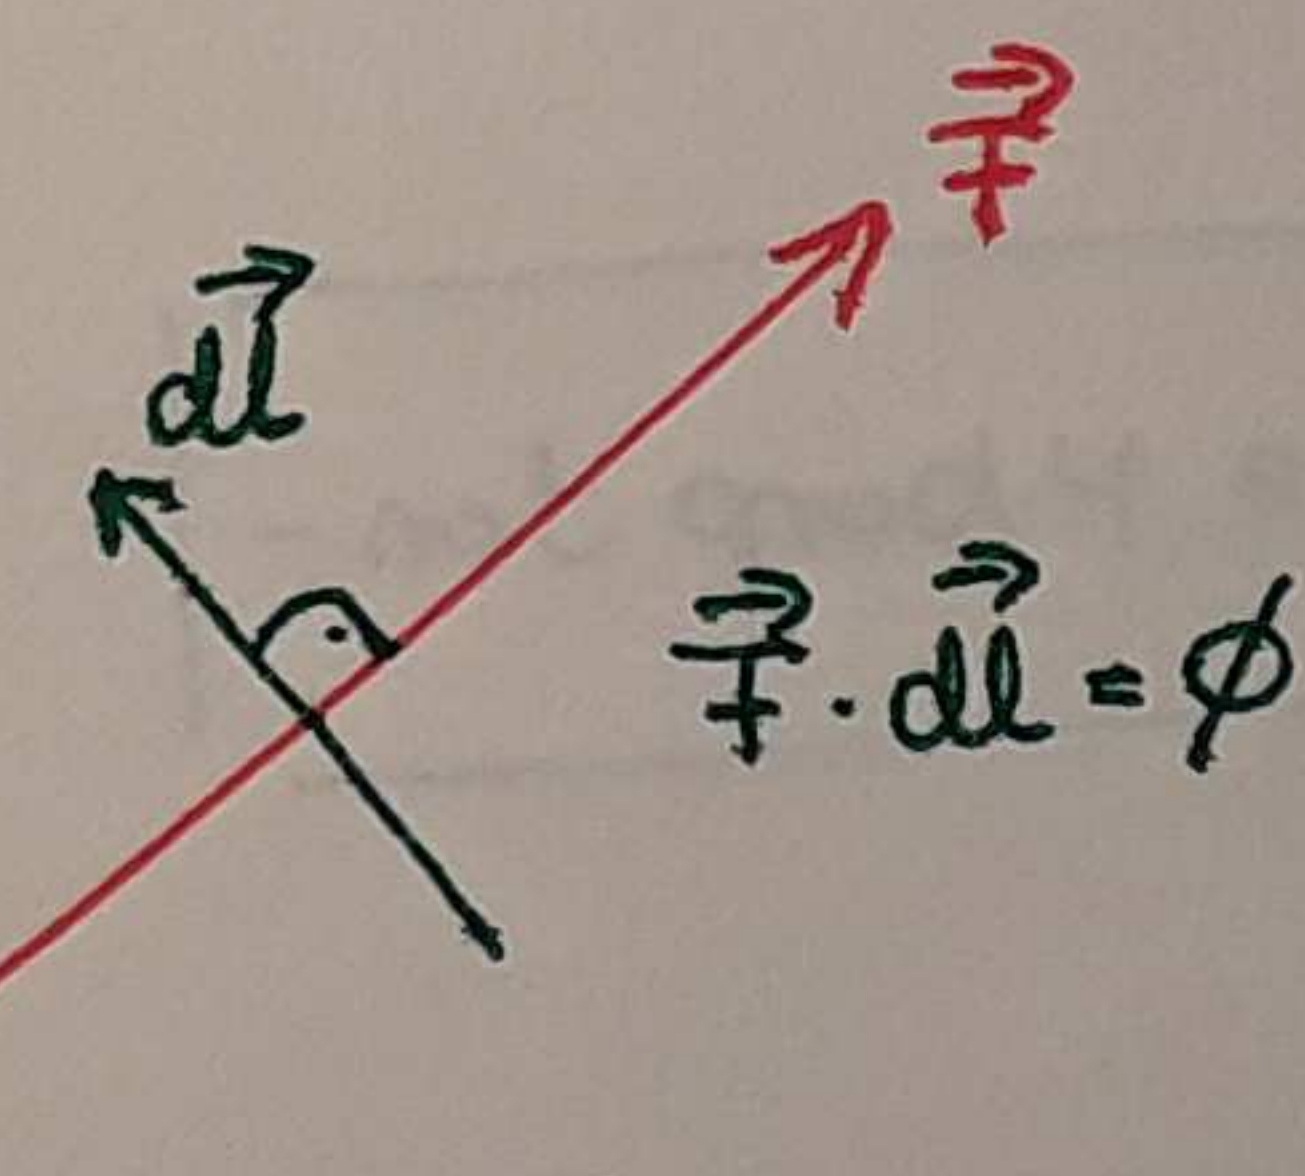 F⃗
dl⃗
F⃗ · dl⃗ = ϕ